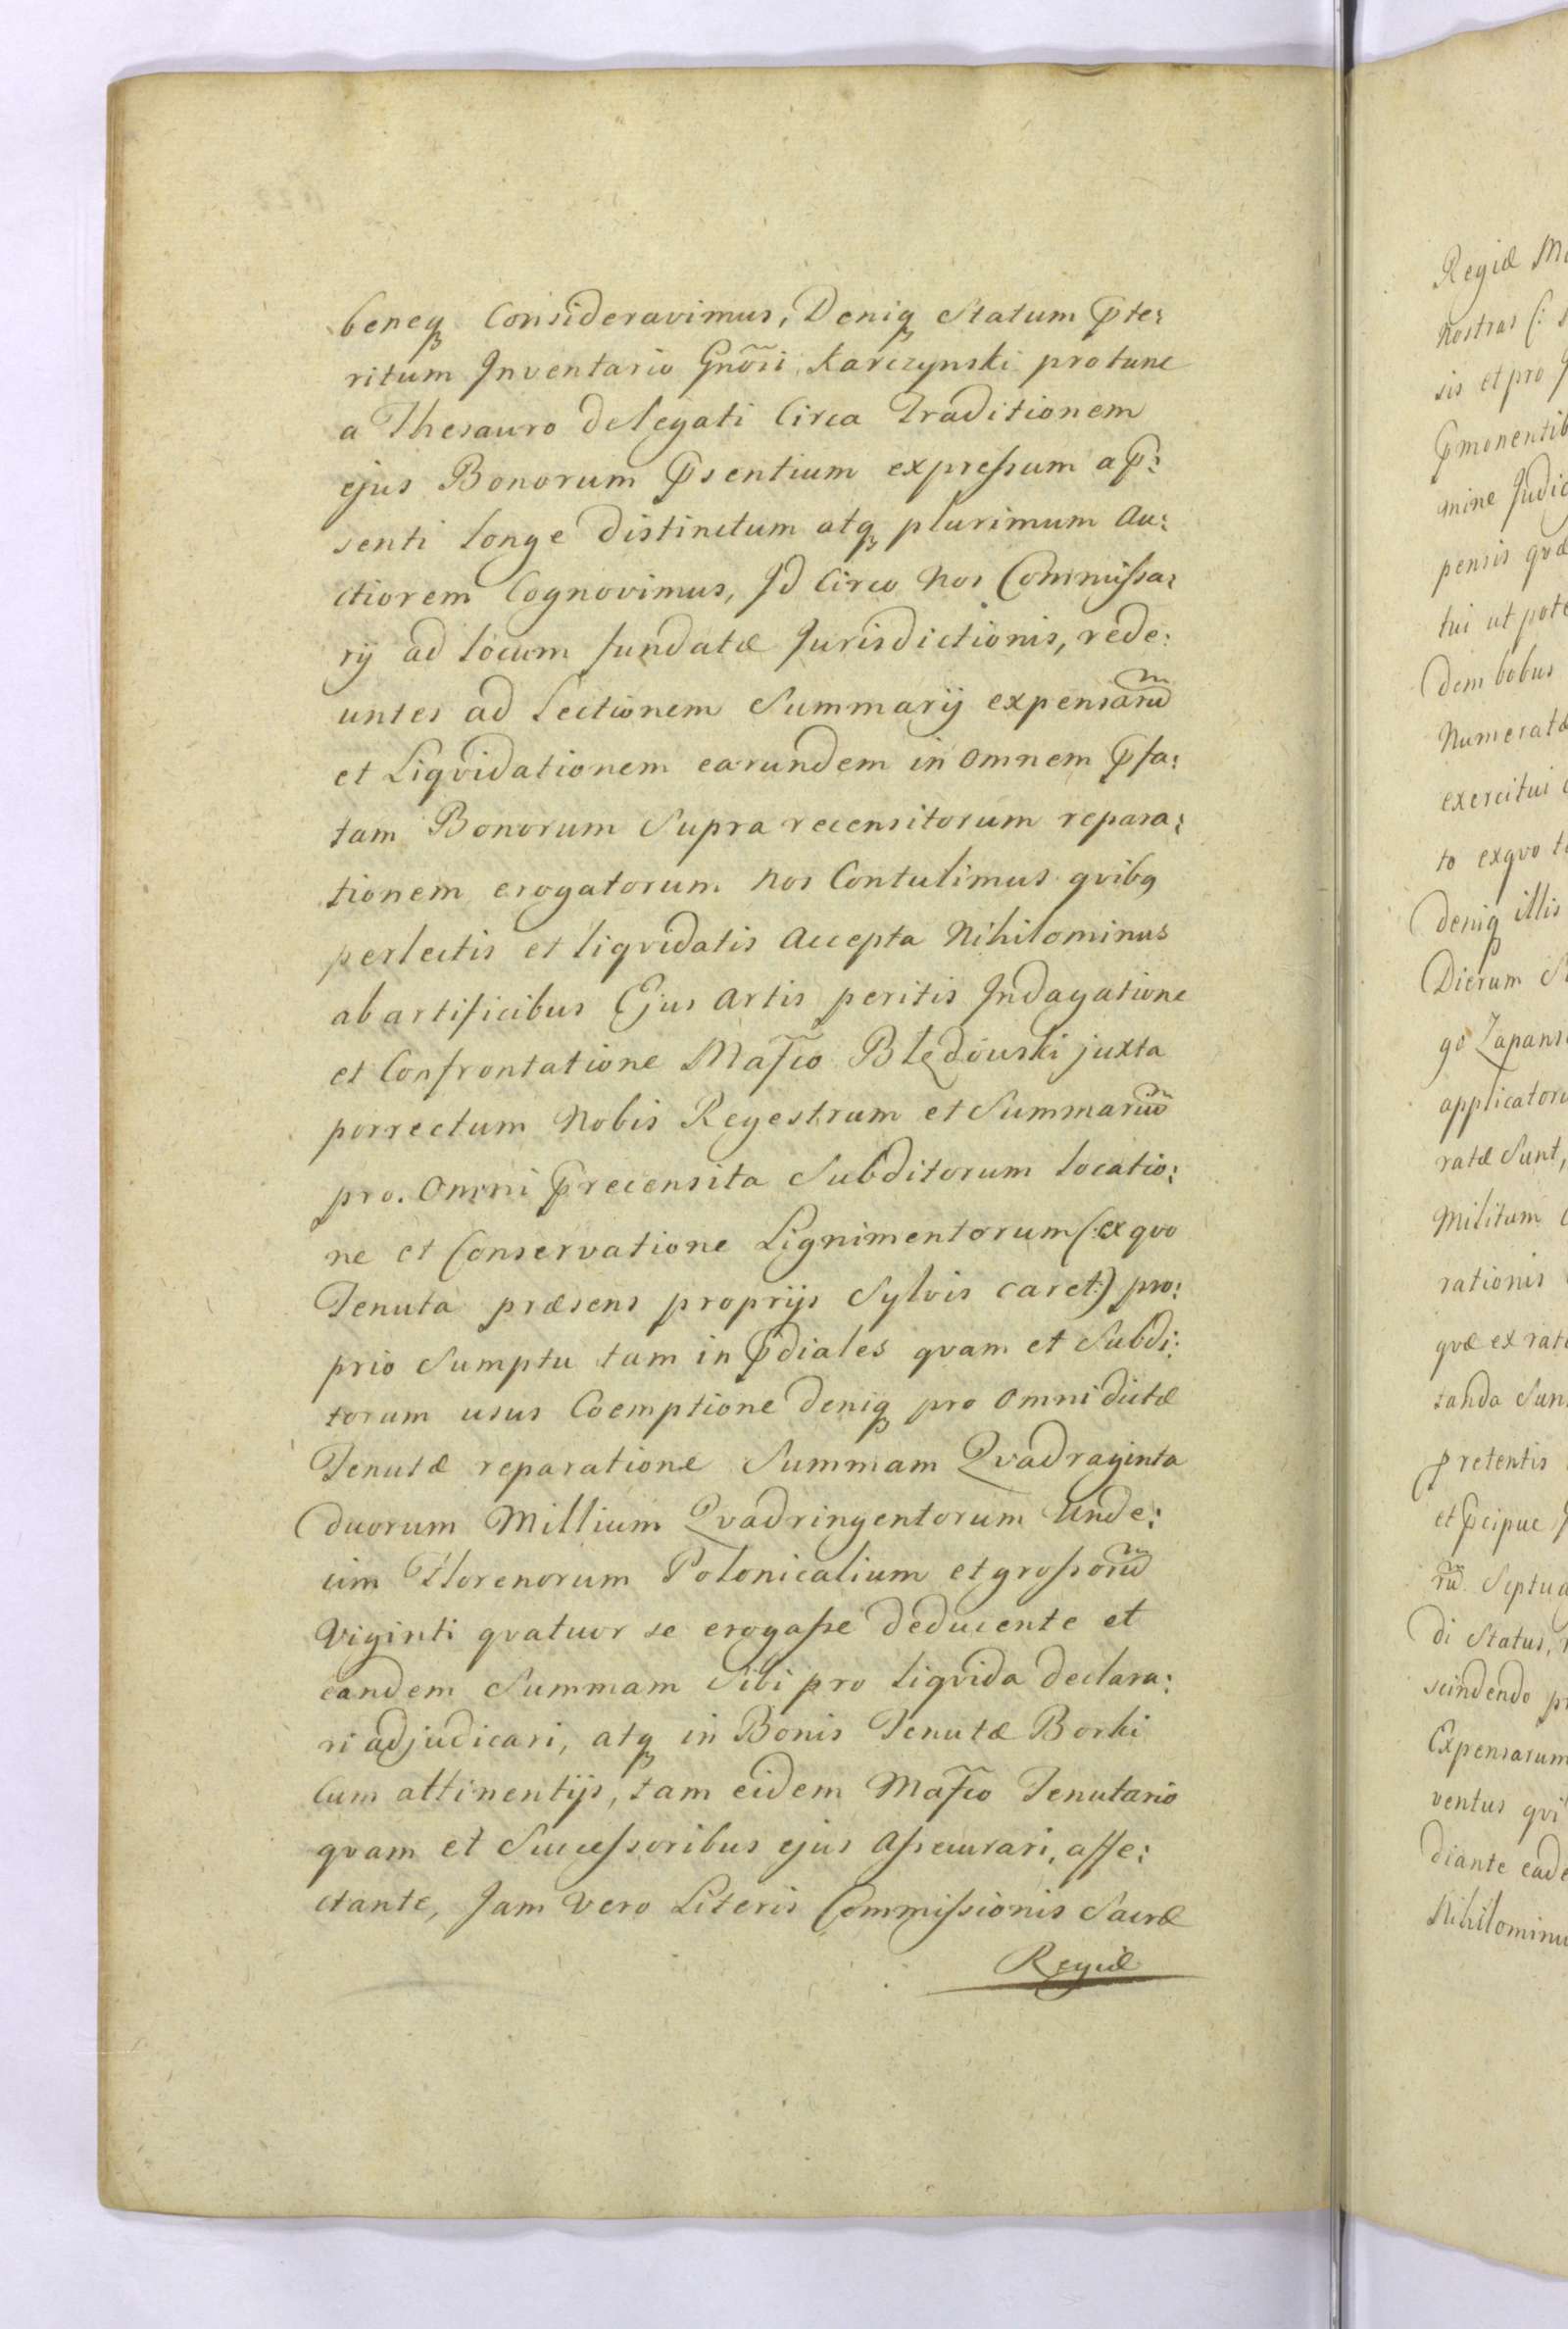 beneq Consideravimus, Deniq Statum Pte:
ritum Inventario Gnõsi Karczynski protunc
a Thesauro delegati Circa Traditionem
ejus Bonorum Psentium expressum a P:
senti longe distinctum atq plurimum au:
ctiorem Cognovimus, Id Circo Nos Commissa:
rij ad locum fundatæ Jurisdictionis, rede:
untes ad Lectionem Summarij expensarũ
et Liqvidationem earundem in omnem Pfa:
tam Bonorum Supra recensitorum repara:
tionem erogatorum Nos Contulimus qvibq
perlectis et liqvidatis accepta Nihilominus
ab artificibus Ejus artis peritis Indagatione
et Confrontatione Mafco Błędowski juxta
porrectum Nobis Regestrum et Summariũ
pro Omni Precensita Subditorum locatio:
ne et Conservatione Lignimentorum (: ex qvo
Tenuta præsens proprijs Sylvis caret :) pro:
prio Sumptu tam in Pdiales qvam et Subdi:
torum usus Coemptione deniq pro omni dictæ
Tenutæ reparatione Summam Qvadraginta
duorum Millium Qvadringentorum Unde:
cim Florenorum Polonicalium et grossorũ
Viginti qvatuor se erogasse deducente et
eandem Summam Sibi pro liqvida declara:
ri adjudicari, atq in Bonis Tenutæ Borki
Cum attinentijs, tam eidem Mafco Tenutario
qvam et Successoribus ejus assecurari, affe:
ctante, Jam vero Literis Commissionis Sacræ
Regiæ
Regiæ
nostras (:
sis et pro
Pmonentib
mine Judic
pensis qvæ
tui ut pote
dem bobus
Numeratæ
exercitui
to exqvo
deniq illis
Dierum
go Zapans
applicatoru
ratæ Sunt,
Militum
rationis
qvæ ex rat
tanda Sun
Pretentis
et Pcipue
rũ Septua
di Status,
scindendo
Expensarum
ventus qvi
diante eade
Nihilominu